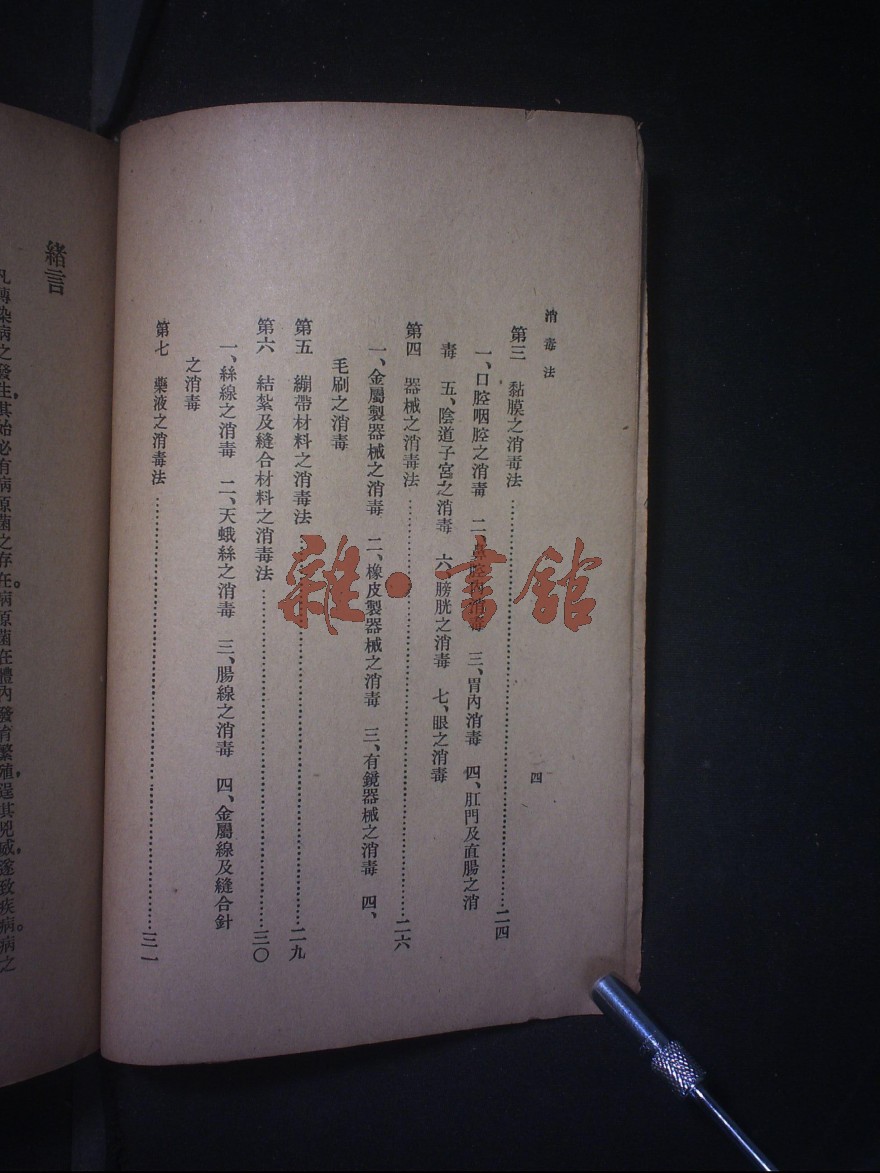 消毒法
四
第三　黏膜之消毒法……二四
一、口腔咽腔之消毒　二、鼻腔內消毒　三、胃內消毒　四、肛門及直腸之消
毒　五、陰道子宮之消毒　六、膀胱之消毒　七、眼之消毒
第四　器械之消毒法……二六
一、金屬製器械之消毒　二、橡皮製器械之消毒　三、有鏡器械之消毒　四、
毛刷之消毒
第五　繃帶材料之消毒法……二九
第六　結紮及縫合材料之消毒法……三〇
一、絲線之消毒　二、天蛾絲之消毒　三、腸線之消毒　四、金屬線及縫合針
之消毒
第七　藥液之消毒法……三一
雜·書館
緒言
凡傳染病之發生，其始必有病原菌之存在。病原菌在體內發育繁殖，逞其兇威，遂致疾病。病之